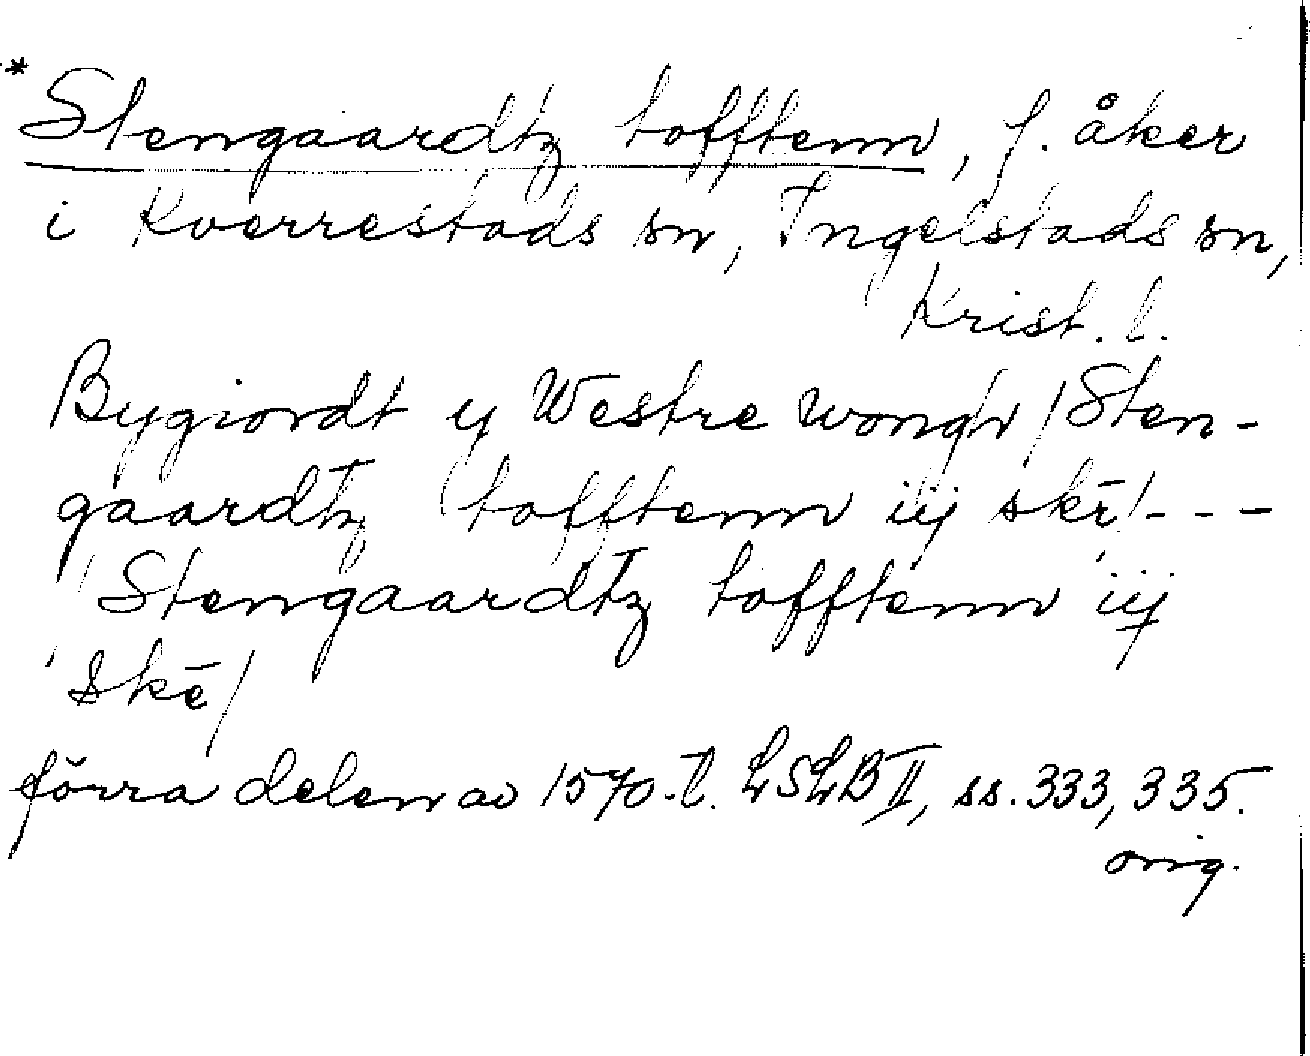 *Stengaardtz tofftenn, f. åker
i Kverrestads sn, Ingelstads sn,
Krist. l.
Bygiordt y Westre wongh / Sten-
gaardtz tofftenn iij skē/ - - -
/ Stengaardtz tofftenn iij
skē /
förra delen av 1570-t. LSLB II, ss. 333, 335.
orig.